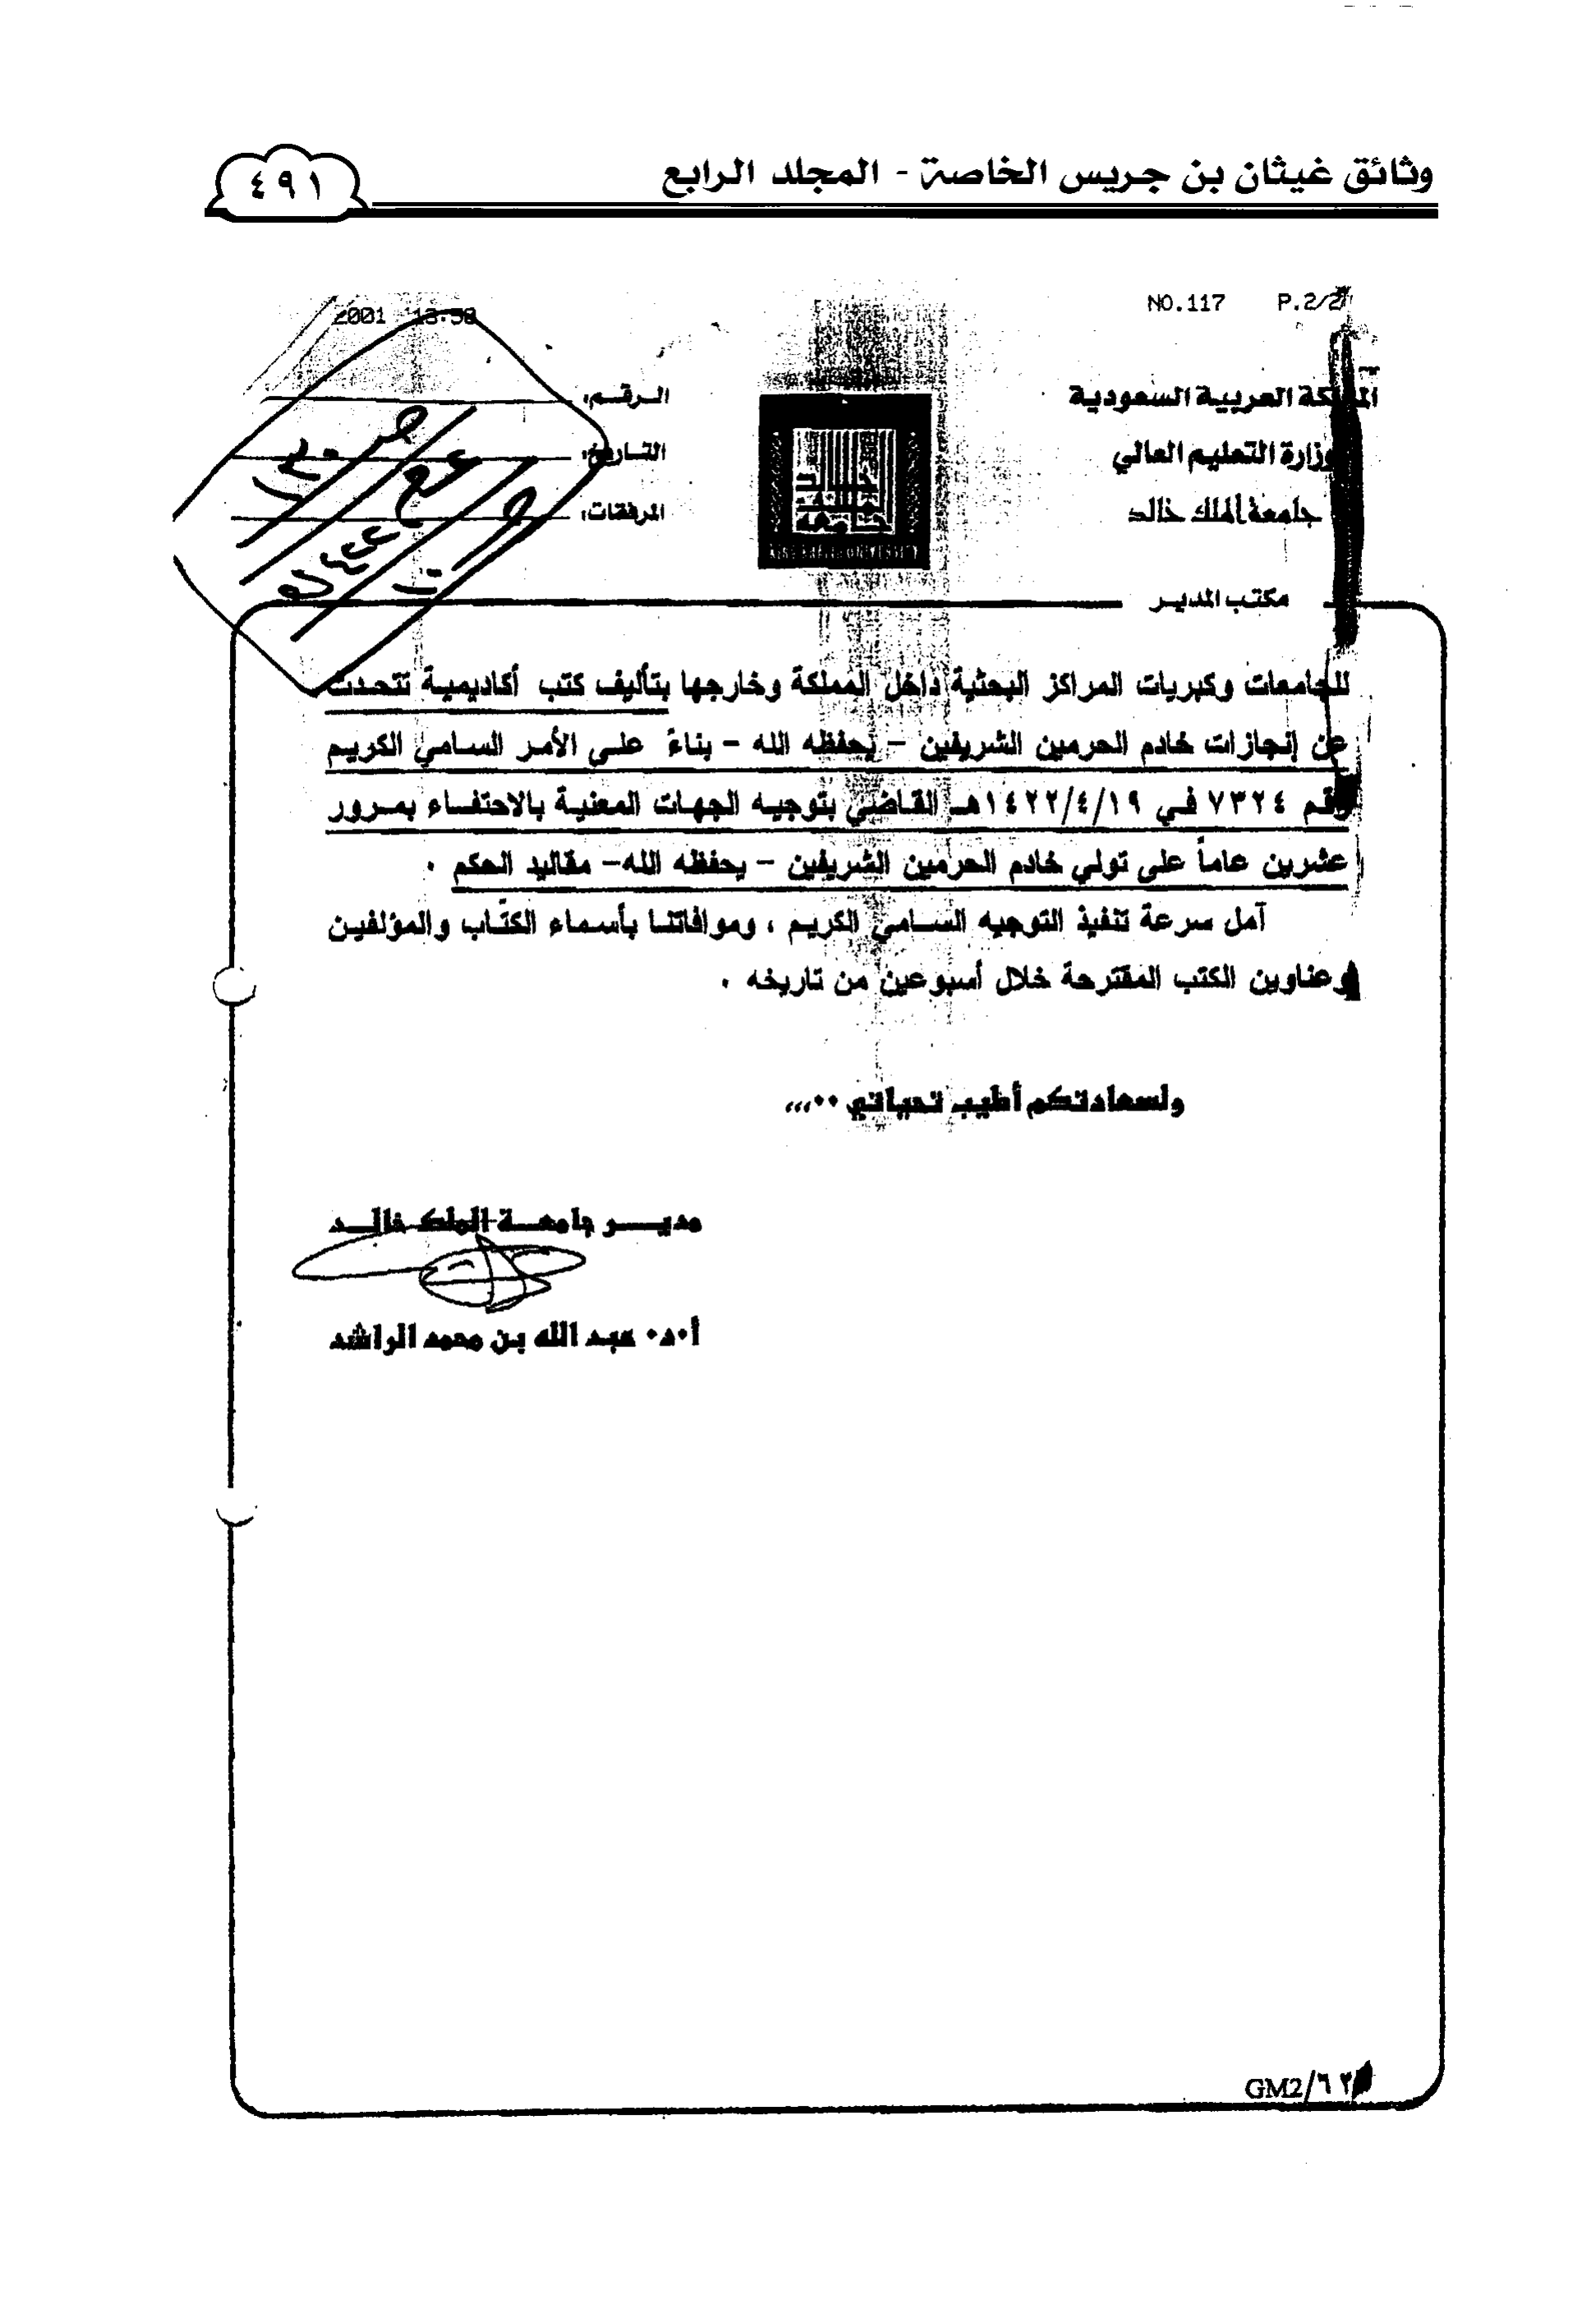 وثائق غيثان بن جريس الخاصة - المجلد الرابع
٤٩١
2001 13:50
NO.117 P.2/2
المملكة العربية السعودية
وزارة التعليم العالي
جامعة الملك خالد
مكتب المدير
الرقم:
التاريخ:
المرفقات:
KING KHALID UNIVERSITY
للجامعات وكبريات المراكز البحثية داخل المملكة وخارجها بتأليف كتب أكاديمية تتحدث
عن إنجازات خادم الحرمين الشريفين – يحفظه الله – بناءً على الأمر السامي الكريم
رقم ٧٣٢٤ في ١٤٢٢/٤/١٩هـ القاضي بتوجيه الجهات المعنية بالاحتفاء بمرور
عشرين عاماً على تولي خادم الحرمين الشريفين – يحفظه الله– مقاليد الحكم .
آمل سرعة تنفيذ التوجيه السامي الكريم ، وموافاتنا بأسماء الكتّاب والمؤلفين
وعناوين الكتب المقترحة خلال أسبوعين من تاريخه .
ولسعادتكم أطيب تحياتي ..,,,
مدير جامعة الملك خالد
أ.د. عبد الله بن محمد الراشد
GM2/٦٢